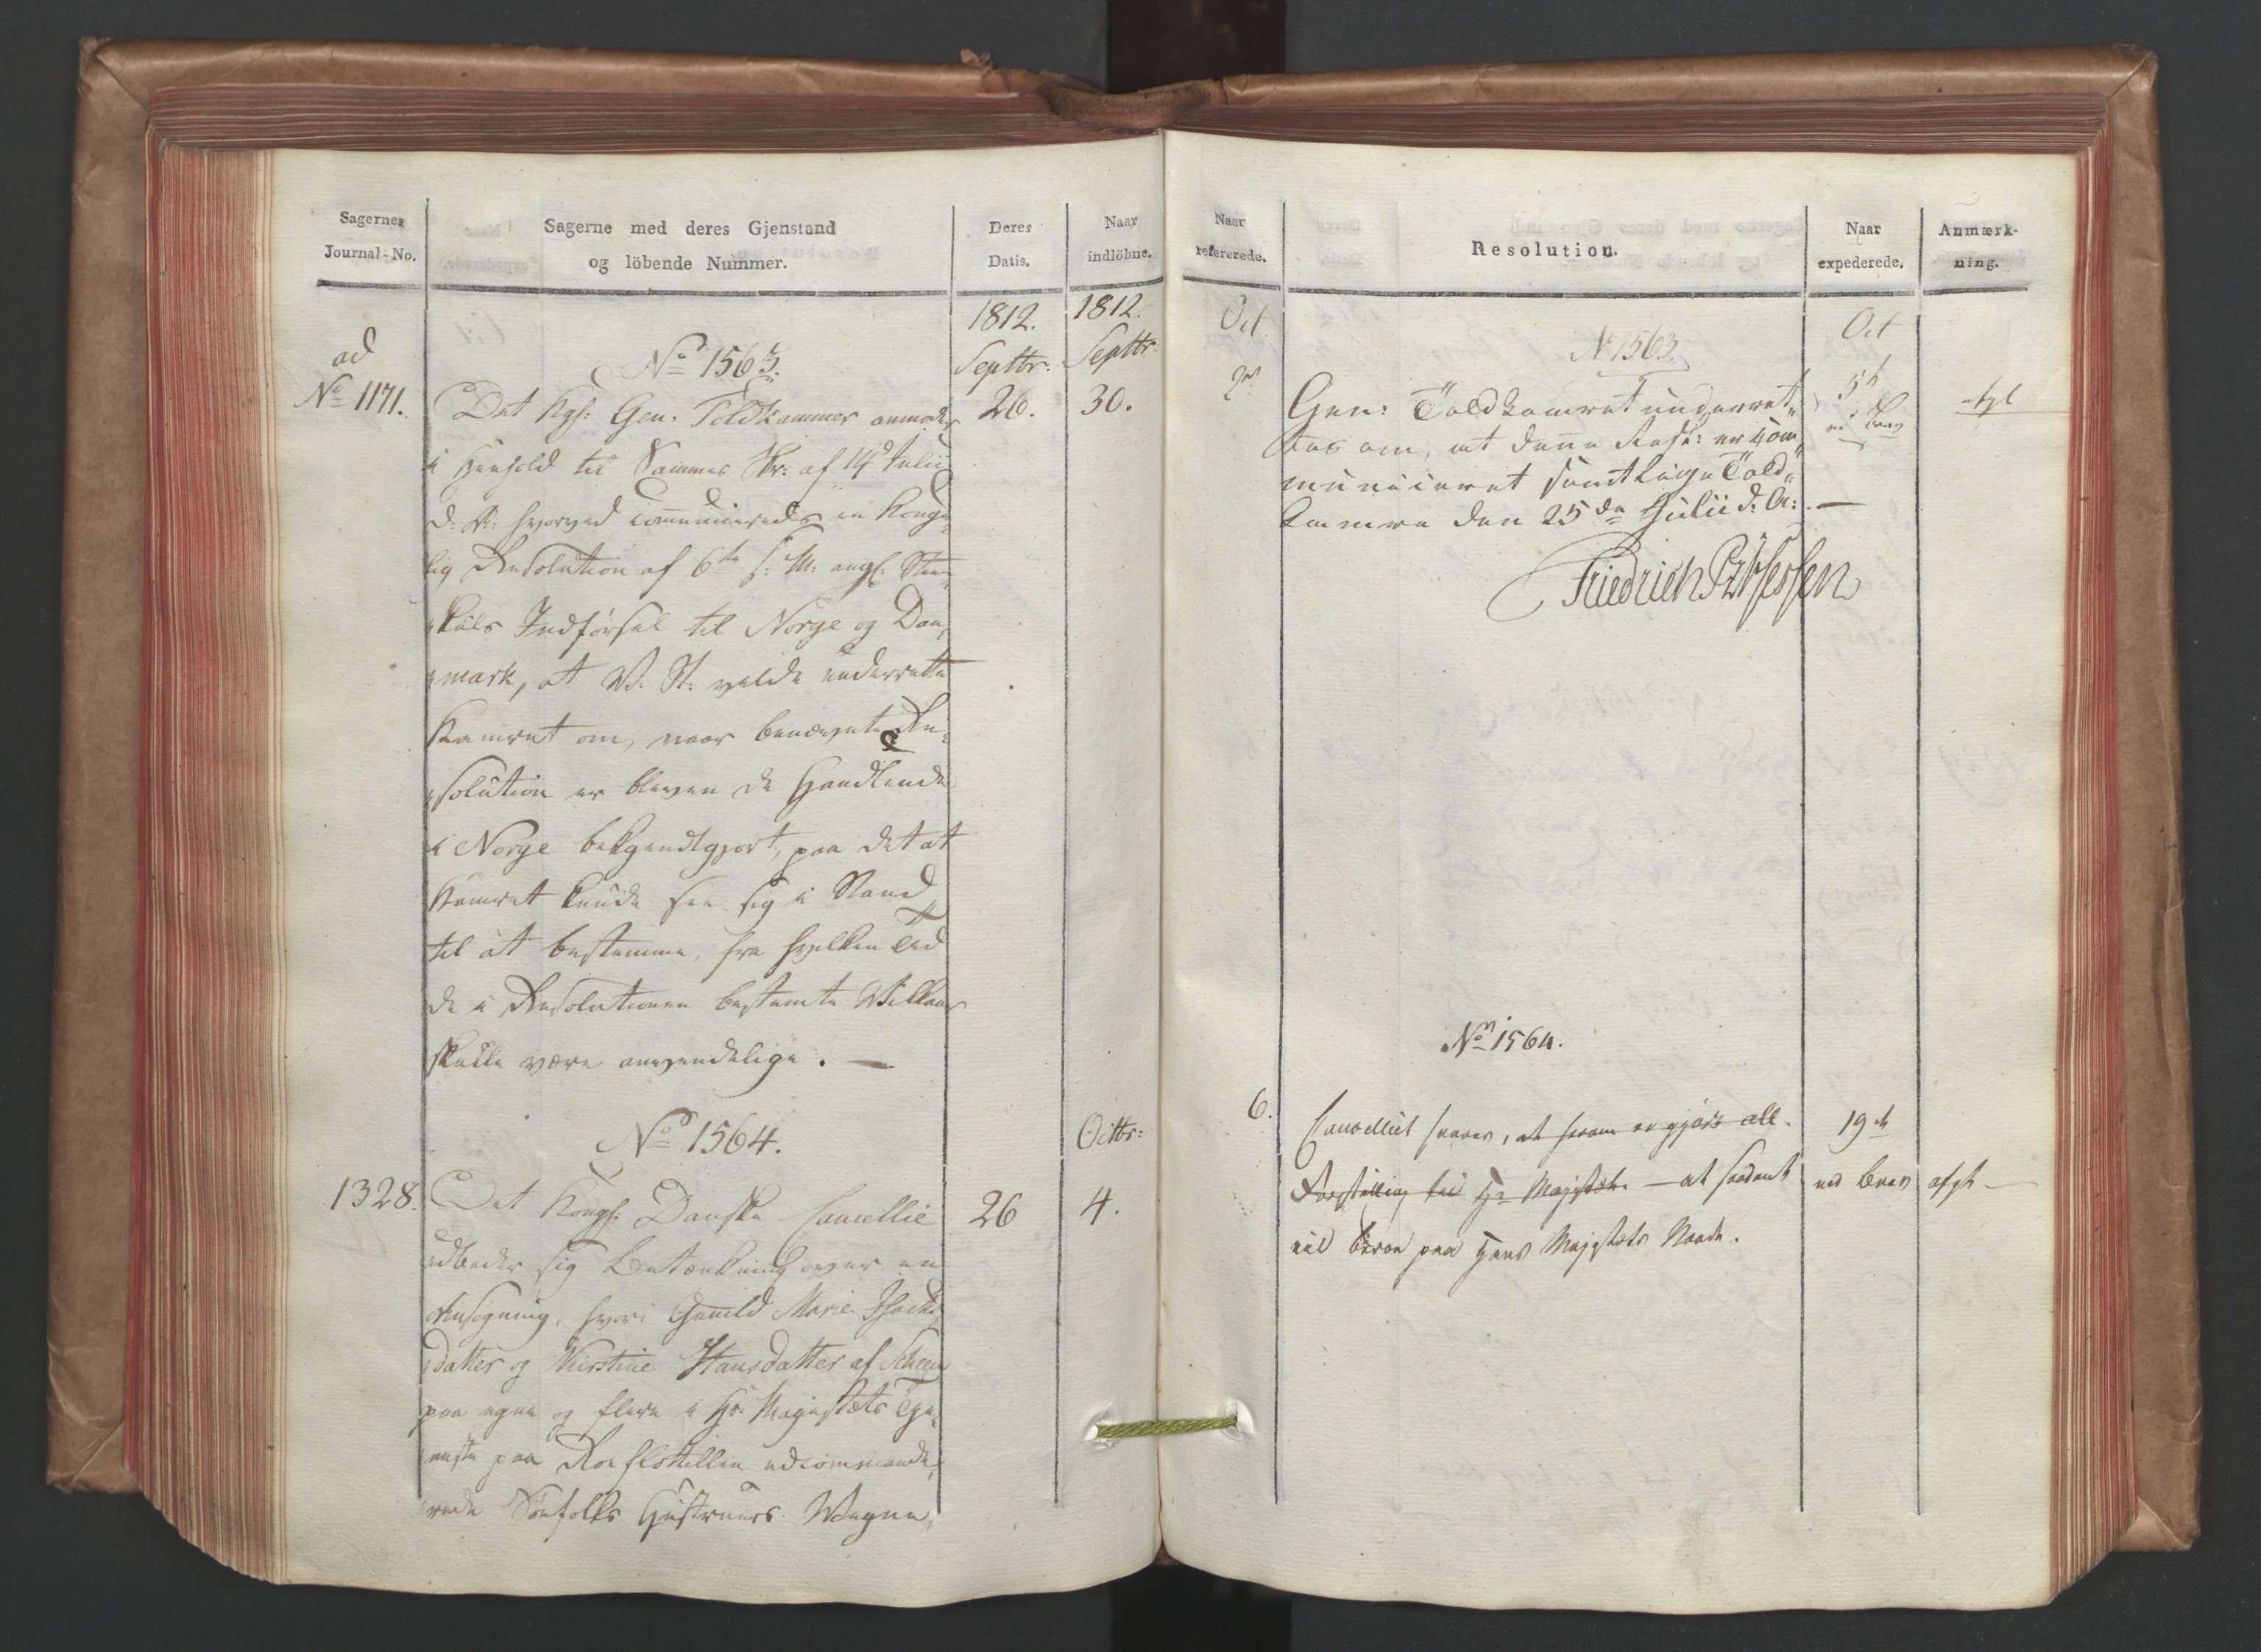 Sagernes
Journal-No.
Sagerne med deres Gjenstand
og löbende Nummer.
Deres
Datis.
Naar
indlöbne.
1812.
1812.
Septbr:
Septbr:
ad
No 1171.
No 1563.
26.
30.
Det Kgl: Gen. Toldkammer anmoder
i Henhold til Sammes Skr: af 14d Julii
d: A: hvorved communiceredes en Konge„
lig Resolution af 6te s: M: angl: Steen„
„kuls Indførsel til Norge og Dan„
„mark, at V: St: vilde underrette
Kamret om, naar benævnte Re„
„solution er bleven de Handlende
i Norge bekjendtgjort, paa det at
Kamret kunde see sig i Stand
til at bestemme, fra hvilken Tid
de i Resolutionen bestemte Villkaar
skulle være anvendelige. —
No 1564.
Octbr:
1328.
26
4.
Det Kongl: Danske Cancellie
udbeder sig Betænkning over en
Ansøgning, hvori Gunild Marie
„datter og Kirstine Hansdatter af Scheen
paa egne og flere i Hs: Majestæts Tje„
„neste paa Roeflottillen udcommande„
„rede Søefolks Hustruers Vegne,
Naar
refererede.
Resolution.
Naar
expederede.
Anmærk-
ning.
Oct
Oct
No 1563.
2den
5t
ved Brev
afgl
Gen: Toldkamret underret„
tes om, at denne Resol: er kom„
municeret samtlige Told„
kamre den 25de Julii d: A: —
Friedrich
No 1564.
6.
19de
ved Brev
afgl —
Cancelliet svares, at herom er gjort all.
Forestilling til Hs Majestæt. — at saadant
vil beroe paa Hans Majestæts Naade.